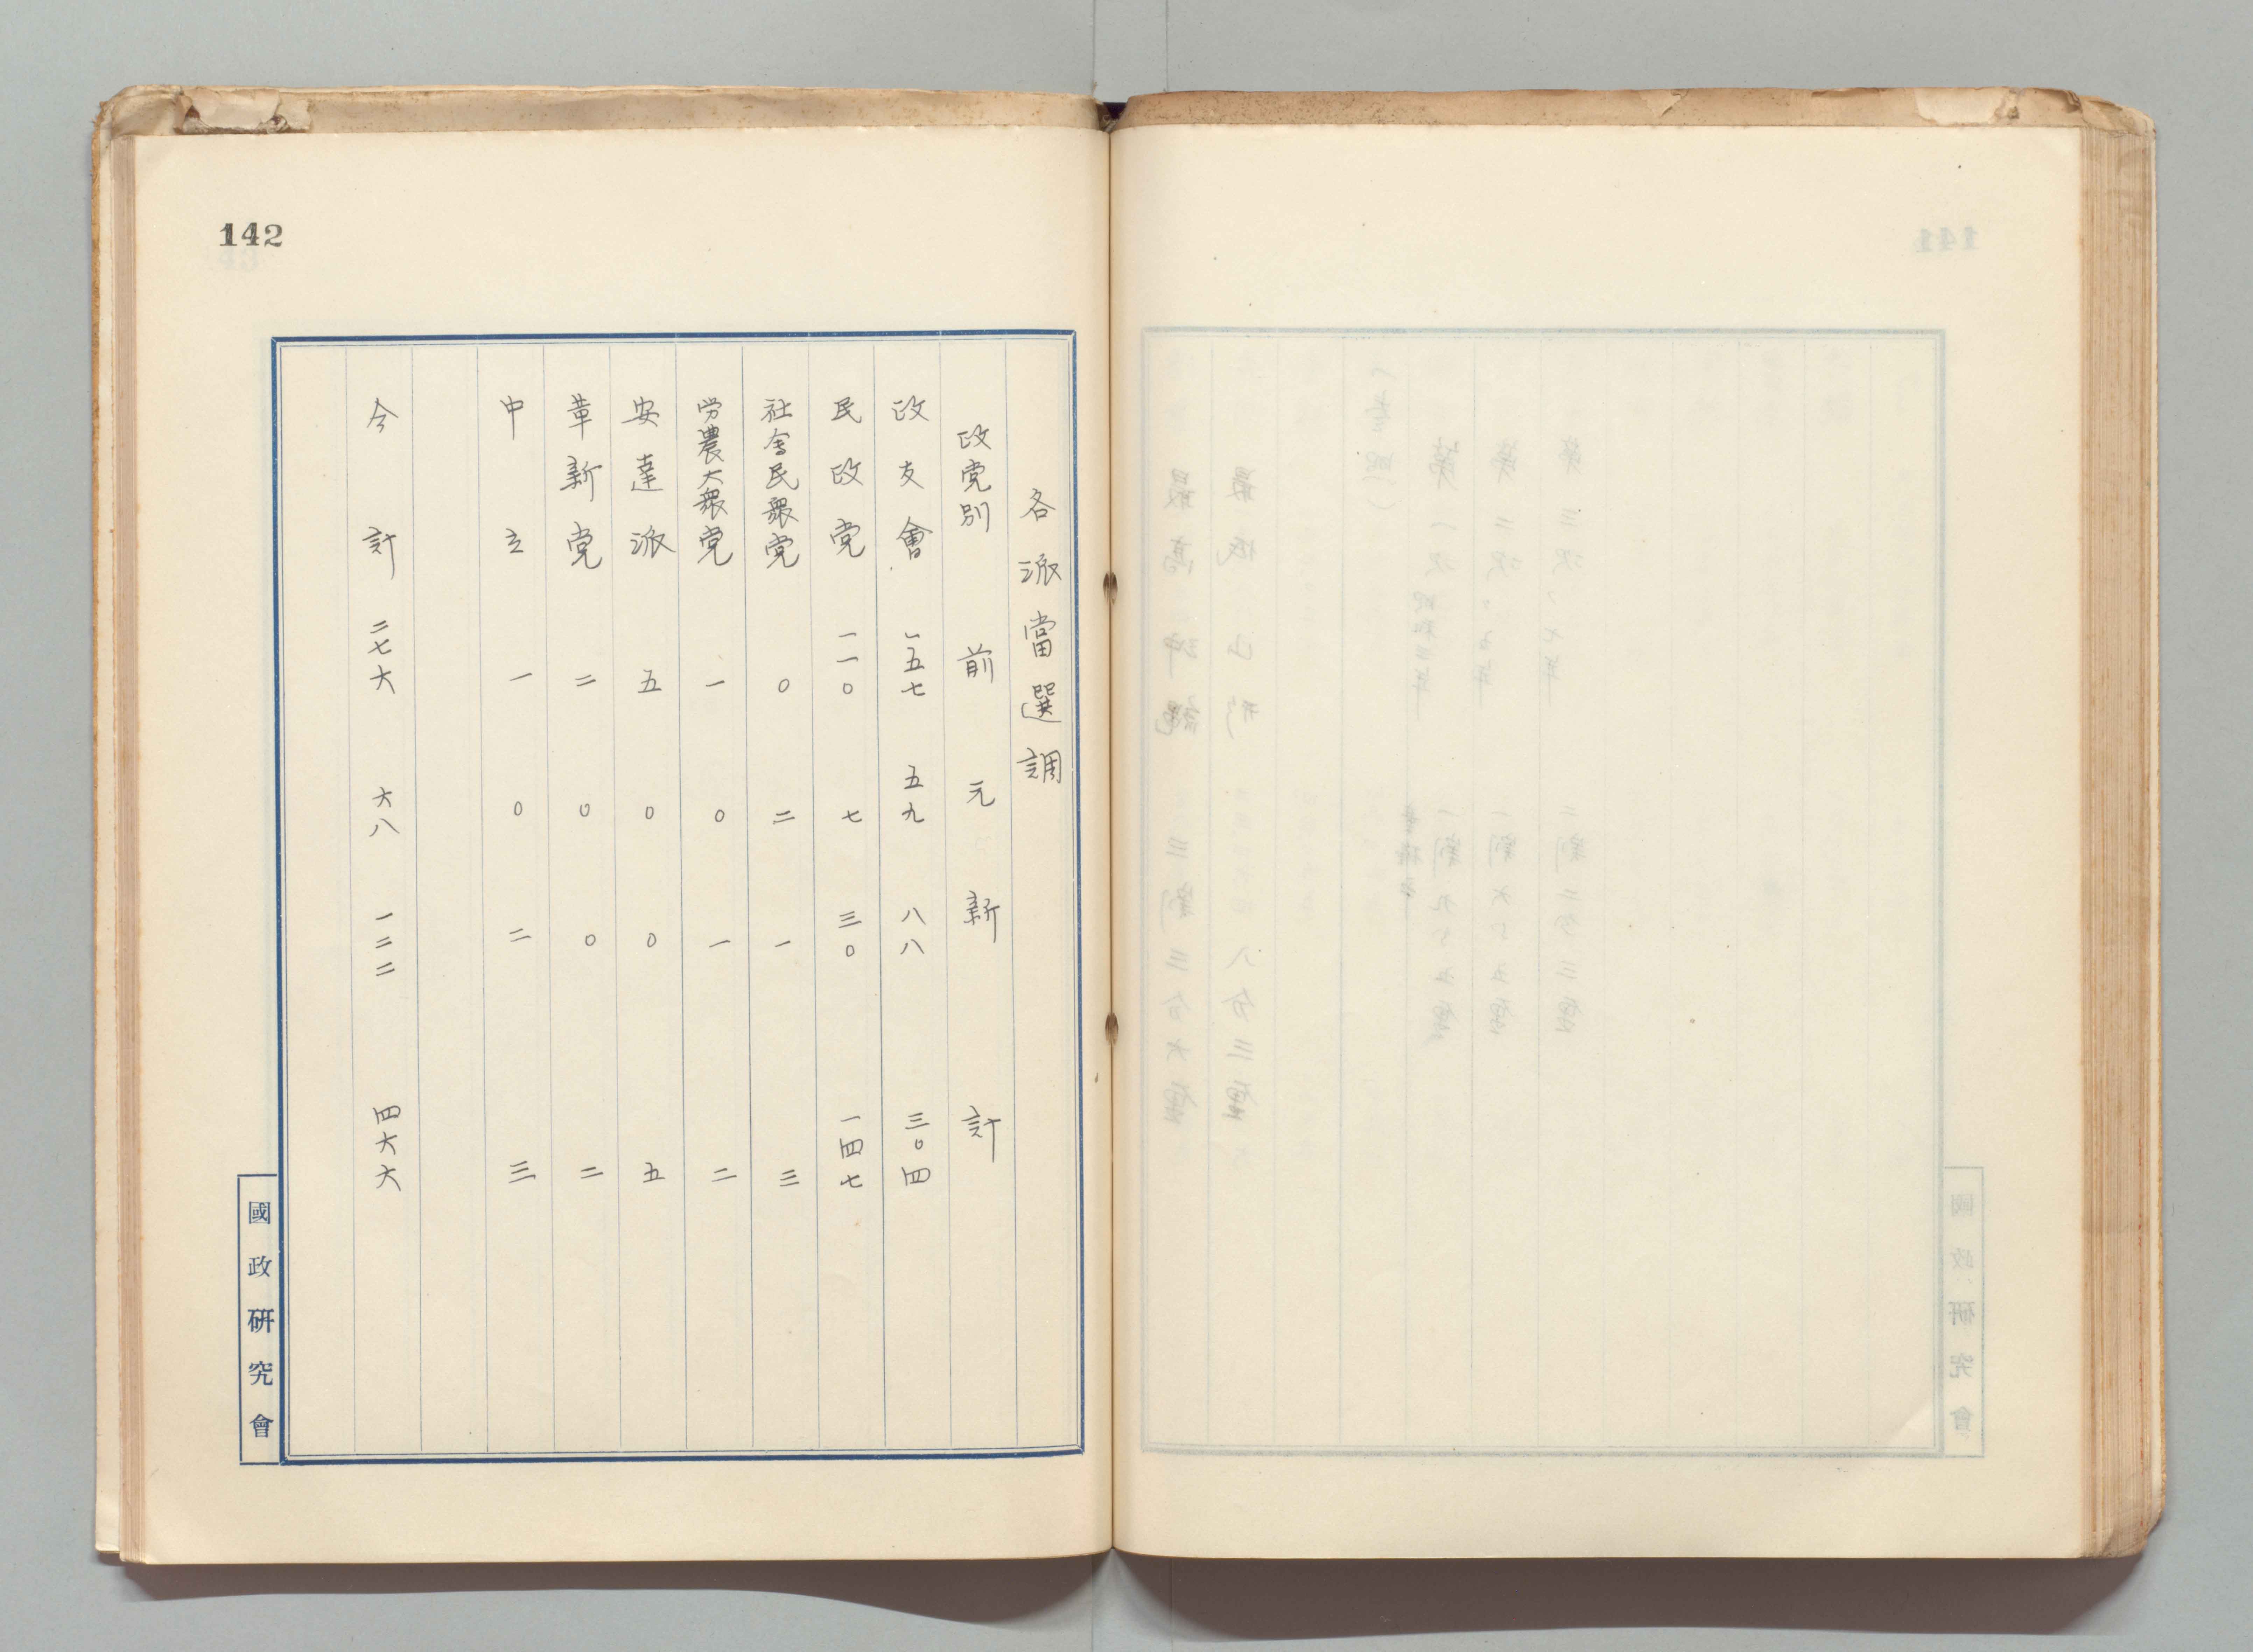 142
各派當選調
政党別 前 元 新 計
政友會 一五七 五九 八八 三〇四
民政党 一一〇 七 三〇 一四七
社會民衆党 〇 二 一 三
労農大衆党 一 〇 一 二
安達派 五 〇 〇 五
革新党 二 〇 〇 二
中立 一 〇 二 三
合計 二七六 六八 一二二 四六六
國政研究會